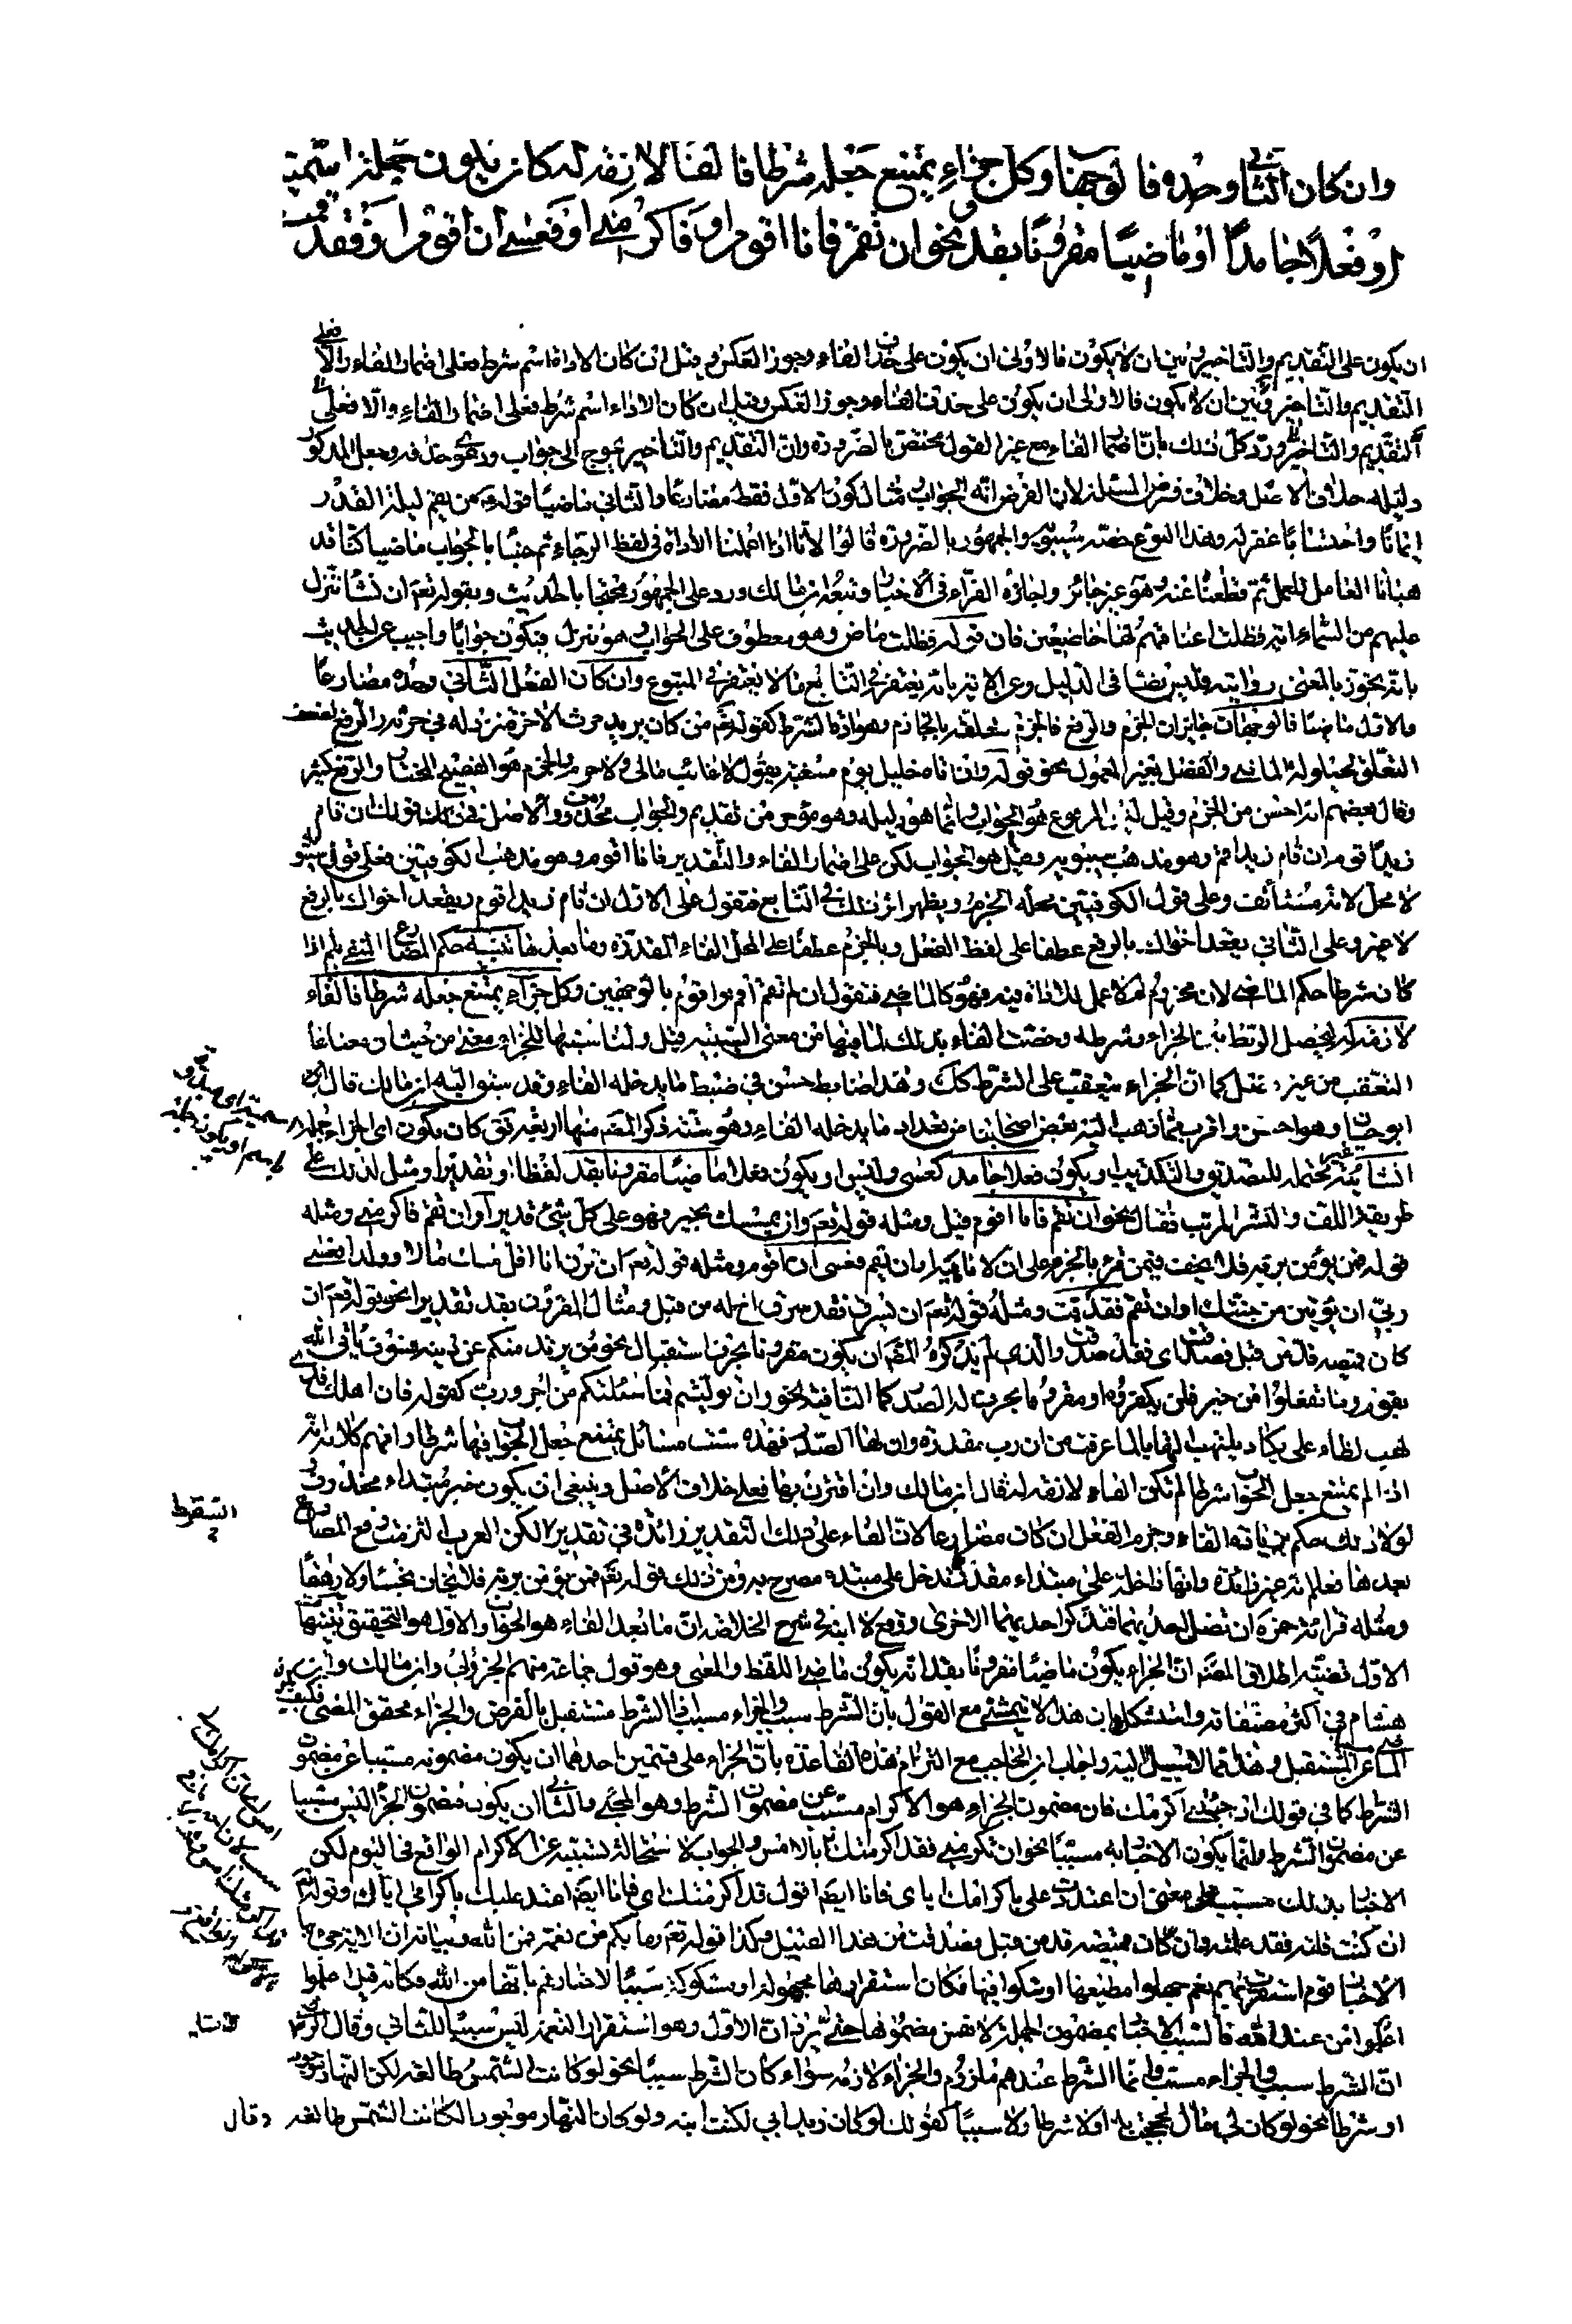 وان كان الثاني وحده فالوجهان وكل جزاء يمتنع جعله شرطا فالفاء لازمة له كان يكون جملة اسمية
او فعلا جامدا او ماضيا مقرونا بقد نحو ان تقم فانا اقوم او فاكرمني او فعسى ان اقوم او فقد قمت
ان يكون على التقديم والتاخير وبين ان لا يكون فالاولى ان يكون على حذف الفاء وجوز العكس وقيل ان كان الاداة اسم شرط فعلى اضمار الفاء والا فعلى
التقديم والتاخير وبين ان لا يكون فالاولى ان يكون على حذف الفاء وجوز العكس وقيل ان كان الاداة اسم شرط فعلى اضمار الفاء والا فعلى
التقديم والتاخير ورد كل ذلك بان اضمار الفاء مع غير القول مختص بالضرورة وان التقديم والتاخير يحوج الى جواب ودعوى حذفه وجعل المذكور
دليله خلاف الاصل وخلاف فرض المسئلة لان الفرض انه الجواب مثال كون الاول فقط مضارعا والثاني ماضيا قوله من يقم ليلة القدر
ايمانا واحتسابا غفر له وهذا النوع خصه سيبويه والجمهور بالضرورة قالوا لانا اذا اعملنا الاداة في لفظ الرجاء ثم جئنا بالجواب ماضيا كنا قد
هيانا العامل للعمل ثم قطعنا عنه وهو غير جائز واجازه الفراء في الاختيار وتبعه ابن مالك ورد على الجمهور محتجا بالحديث وبقوله تعم ان نشأ ننزل
عليهم من السماء اية فظلت اعناقهم لها خاضعين فان قوله فظلت ماض وهو معطوف على الجواب وهو ننزل فيكون جوابا واجيب عن الحديث
بانه يجوز بالمعنى روايته فليس نصا في الدليل وعن الاية بانه يغتفر في التابع ما لا يغتفر في المتبوع وان كان الفعل الثاني وحده مضارعا
والاول ماضيا فالوجهان جايزان الجزم والرفع فالجزم لتعلقه بالجازم وهو اداة الشرط كقوله تعم من كان يريد حرث الاخرة نزد له في حرثه والرفع لضعف
التعلق لحيلولة الماضي والفصل بغير المعمول نحو قوله وان اتاه خليل يوم مسغبة يقول لا غائب مالي ولا حرم والجزم هو الفصيح المختار والرفع كثير
وقال بعضهم انه احسن من الجزم وقيل ليس المرفوع هو الجواب وانما هو دليله وهو مؤخر من تقديم والجواب محذوف والاصل في قولك ان قام
زيد اقوم ان قام زيد اقم وهو مذهب سيبويه وقيل هو الجواب لكن على اضمار الفاء والتقدير فانا اقوم وهو مذهب الكوفيين فعلى قول سيبويه
لا محل لانه مستأنف وعلى قول الكوفيين محله الجزم ويظهر اثر ذلك في التابع فتقول على الاول ان قام زيد اقوم ويقعد اخوك بالرفع
لا غير وعلى الثاني يقعد اخوك بالرفع عطفا على لفظ الفعل وبالجزم عطفا على محل الفاء المقدرة وما بعدها تنبيه حكم المضارع المنفي بلم اذا
كان شرطا حكم الماضي لان مجزوم لم لا عمل للاداة فيه فهو كالماضي فتقول ان لم تقم اقم واقوم بالوجهين وكل جزاء يمتنع جعله شرطا فالفاء
لازمة له ليحصل الربط بين الجزاء وشرطه وخصت الفاء بذلك لما فيها من معنى السببية قيل ولمناسبتها للجزاء معنى من حيث ان معناها
التعقيب من غير فصل كما ان الجزاء يتعقب على الشرط كك وهذا ضابط حسن في ضبط ما يدخله الفاء وقد سبق اليه ابن مالك قال
ابو حيان وهو احسن واقرب مما ذهب اليه بعض اصحابنا من تعداد ما يدخله الفاء وهو ستة ذكر المص منها اربعة بقي كان يكون اي الجزاء جملة
اسمية اي مبتدا و
لا اسم او يكون جملة
انشائية غير محتملة للتصديق والتكذيب او يكون فعلا جامدا كعسى وليس او يكون فعلا ماضيا مقرونا بقد لفظا او تقديرا ومثل لذلك على
طريقة اللف والنشر المرتب فقال نحو ان تقم فانا اقوم قيل ومثله قوله تعم وان يمسسك بخير فهو على كل شيء قدير او ان تقم فاكرمني ومثله
قوله فمن يؤمن بربه فلا يخف فيمن قرء بالجزم على ان لا ناهية او ان تقم فعسى ان اقوم ومثله قوله تعم ان ترن انا اقل منك مالا وولدا فعسى
ربي ان يؤتين من جنتك او ان تقم فقد قمت ومثله قوله تعم ان يسرق فقد سرق اخ له من قبل ومثال المقرون بقد تقديرا نحو قوله تعم ان
كان قميصه قد من قبل فصدقت اي فقد صدقت والذي لم يذكره المص ان يكون مقرونا بحرف استقبال نحو من يرتد منكم عن دينه فسوف يأتي الله
بقوم وما تفعلوا من خير فلن يكفروه او مقرونا بحرف له الصدر كما النافية نحو وان توليتم فما سئلتكم من اجر ورب كقوله فان اهلك فذي
لهب لظاه علي يكاد يلتهب التهابا لما عرفت من ان رب مقدرة وان لها الصدر فهذه ست مسائل يمتنع جعل الجواب فيها شرطا وافهم كلامه انه
اذا لم يمتنع جعل الجواب شرطا لم تكن الفاء لازمة له قال ابن مالك وان اقترن بها فعلى خلاف الاصل وينبغي ان يكون خبر مبتداء محذوف
لولا ذلك حكم بزيادة الفاء وجزم الفعل ان كان مضارعا لان الفاء على ذلك التقدير زائدة في تقدير السقوط لكن العرب التزمت رفع المضارع
بعدها فعلم انه غير زائدة وانها داخلة على مبتداء مقدر كما تدخل على مبتداء مصرح به ومن ذلك قوله تعم فمن يؤمن بربه فلا يخاف بخسا ولا رهقا
ومثله قراءة حمزة ان تضل احديهما فتذكر احديهما الاخرى ووقع لابنه في شرح الخلاصة ان ما بعد الفاء هو الجواب والاول هو التحقيق تنبيهان
الاول قضية اطلاق المص ان الجزاء يكون ماضيا مقرونا بقد انه يكون ماضي اللفظ والمعنى وهو قول جماعة منهم الجزولي وابن مالك وابن
هشام في اكثر مصنفاته واستشكل بان هذا لا يتمشى مع القول بان الشرط سبب والجزاء مسبب اذ الشرط مستقبل بالفرض والجزاء محقق المضي فكيف يكون
الماضي مسببا عن المستقبل وهذا مما لا سبيل اليه واجاب ابن الحاجب مع التزام هذه القاعدة بان الجزاء على قسمين احدهما ان يكون مضمونه مسببا عن مضمون
الشرط كما في قولك ان جئتني اكرمتك فان مضمون الجزاء هو الاكرام مسبب عن مضمون الشرط وهو المجيء والثاني ان يكون مضمون الجزاء ليس مسببا
عن مضمون الشرط وانما يكون الاخبار به مسببا نحو ان تكرمني فقد اكرمتك بالامس والجواب لاستحالة تسببه عن الاكرام الواقع في اليوم لكن
الاخبار بذلك مسبب على معنى ان اعتددت علي باكرامك اياي فانا ايضا اقول قد اكرمتك اي فانا ايضا اعتد عليك باكرامي اياك وقوله تعم
ان كنت قلته فقد علمته وان كان قميصه قد من قبل فصدقت من هذا القبيل وكذا قوله تعم وما بكم من نعمة فمن الله وبيانه ان الاية جيء بها
لاخبار قوم استقرت بهم نعم جهلوا معطيها او شكوا فيها فكان استقرارها مجهولة او مشكوكة سببا لاخبارهم بانها من الله فكانه قيل اعلموا
انها من عند الله فالسبب الاخبار بمضمون الجملة لا نفس مضمونها حتى يرد ان الاول وهو استقرار النعمة ليس سببا للثاني وقال الرضي
ان الشرط سبب والجزاء مسبب وانما الشرط عندهم ملزوم والجزاء لازمه سواء كان الشرط سببا نحو لو كانت الشمس طالعة لكان النهار موجودا
او شرطا نحو لو كان لي مال لحججت به او لا شرطا ولا سببا كقولك لو كان زيد ابي لكنت ابنه ولو كان النهار موجودا لكانت الشمس طالعة وقال
السقوط